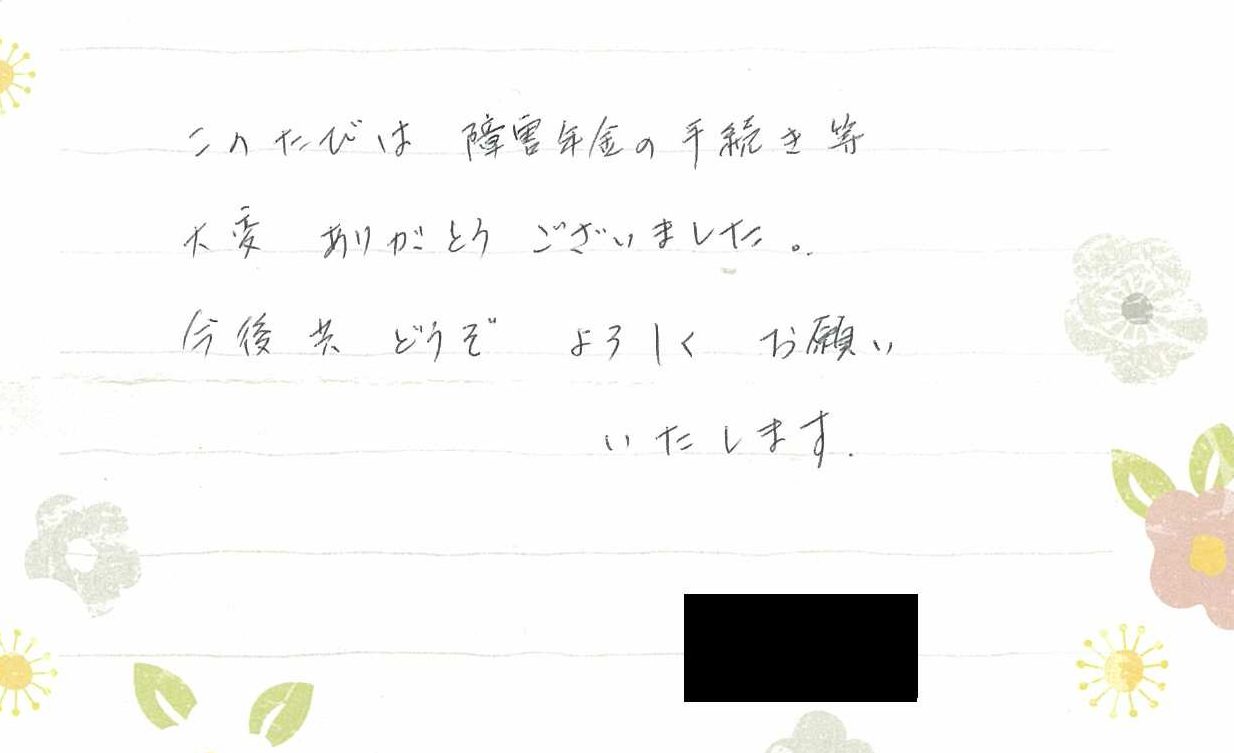 このたびは 障害年金の手続き等
大変 ありがとう ございました。
今後共 どうぞ よろしく お願い
いたします.